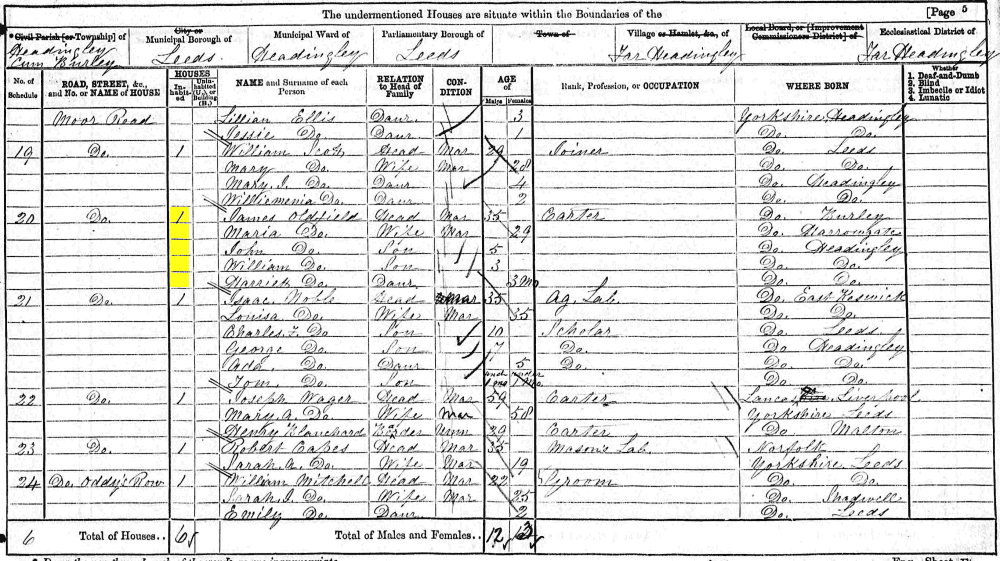 The undermentioned Houses are situate within the Boundaries of the [Page 5
* Civil Parish [or Township] of City or Municipal Borough of Municipal Ward of Parliamentary Borough of Town of Village or Hamlet, &c., of Local Board, or [Improvement Commissioners District] of Ecclesiastical District of
Headingley Cum Burley Leeds Headingley Leeds Far Headingley Far Headingley
No. of Schedule ROAD, STREET, &c., and No. or NAME of HOUSE HOUSES In-habit-ed Unin-habited (U.), or Building (B.) NAME and Surname of each Person RELATION to Head of Family CON-DITION AGE of Males Females Rank, Profession, or OCCUPATION WHERE BORN Whether 1. Deaf-and-Dumb 2. Blind 3. Imbecile or Idiot 4. Lunatic
Moor Road Lillian Ellis Daur 3 Yorkshire Headingley
Jessie Do. Daur 1 Do. Do.
19 Do. 1 William Scot Head Mar 29 Joiner Do. Leeds
Mary Do. Wife Mar 28 Do. Do.
Mary J. Do. Daur 4 Do. Headingley
Williemenia Do. Daur 2 Do. Do.
20 Do. 1 James Oldfield Head Mar 35 Carter Do. Burley
Maria Do. Wife Mar 29 Do. Harrowgate
John Do. Son 5 Do. Headingley
William Do. Son 3 Do. Do.
Harriet Do. Daur 3 Mo Do. Do.
21 Do. 1 Isaac Noble Head Mar 35 Ag. Lab. Do. East Keswick
Louisa Do. Wife Mar 35 Do. Do.
Charles F. Do Son 10 Scholar Do. Leeds
George Do. Son 7 Do. Do Headingley
Ada Do. Daur 5 Do. Do. Do.
Tom Do. Son und 1 mo under 1 Mo Do. Do.
22 Do. 1 Joseph Wager Head Mar 59 Carter Lanca. Liverpool
Mary A. Do. Wife Mar 58 Yorkshire Leeds
Henry Blanchard Border Unm 29 Carter Do. Malton
23 Do. 1 Robert Capes Head Mar 35 Mason's Lab. Norfolk
Sarah A. Do. Wife Mar 19 Yorkshire Leeds
24 Do. Oddy's Row 1 William Mitchell Head Mar 22 Groom Do. Do.
Sarah J. Do. Wife Mar 25 Do. Shadwell
Emily Do. Daur 2 Do. Leeds
6 Total of Houses.. 6 Total of Males and Females.. 12